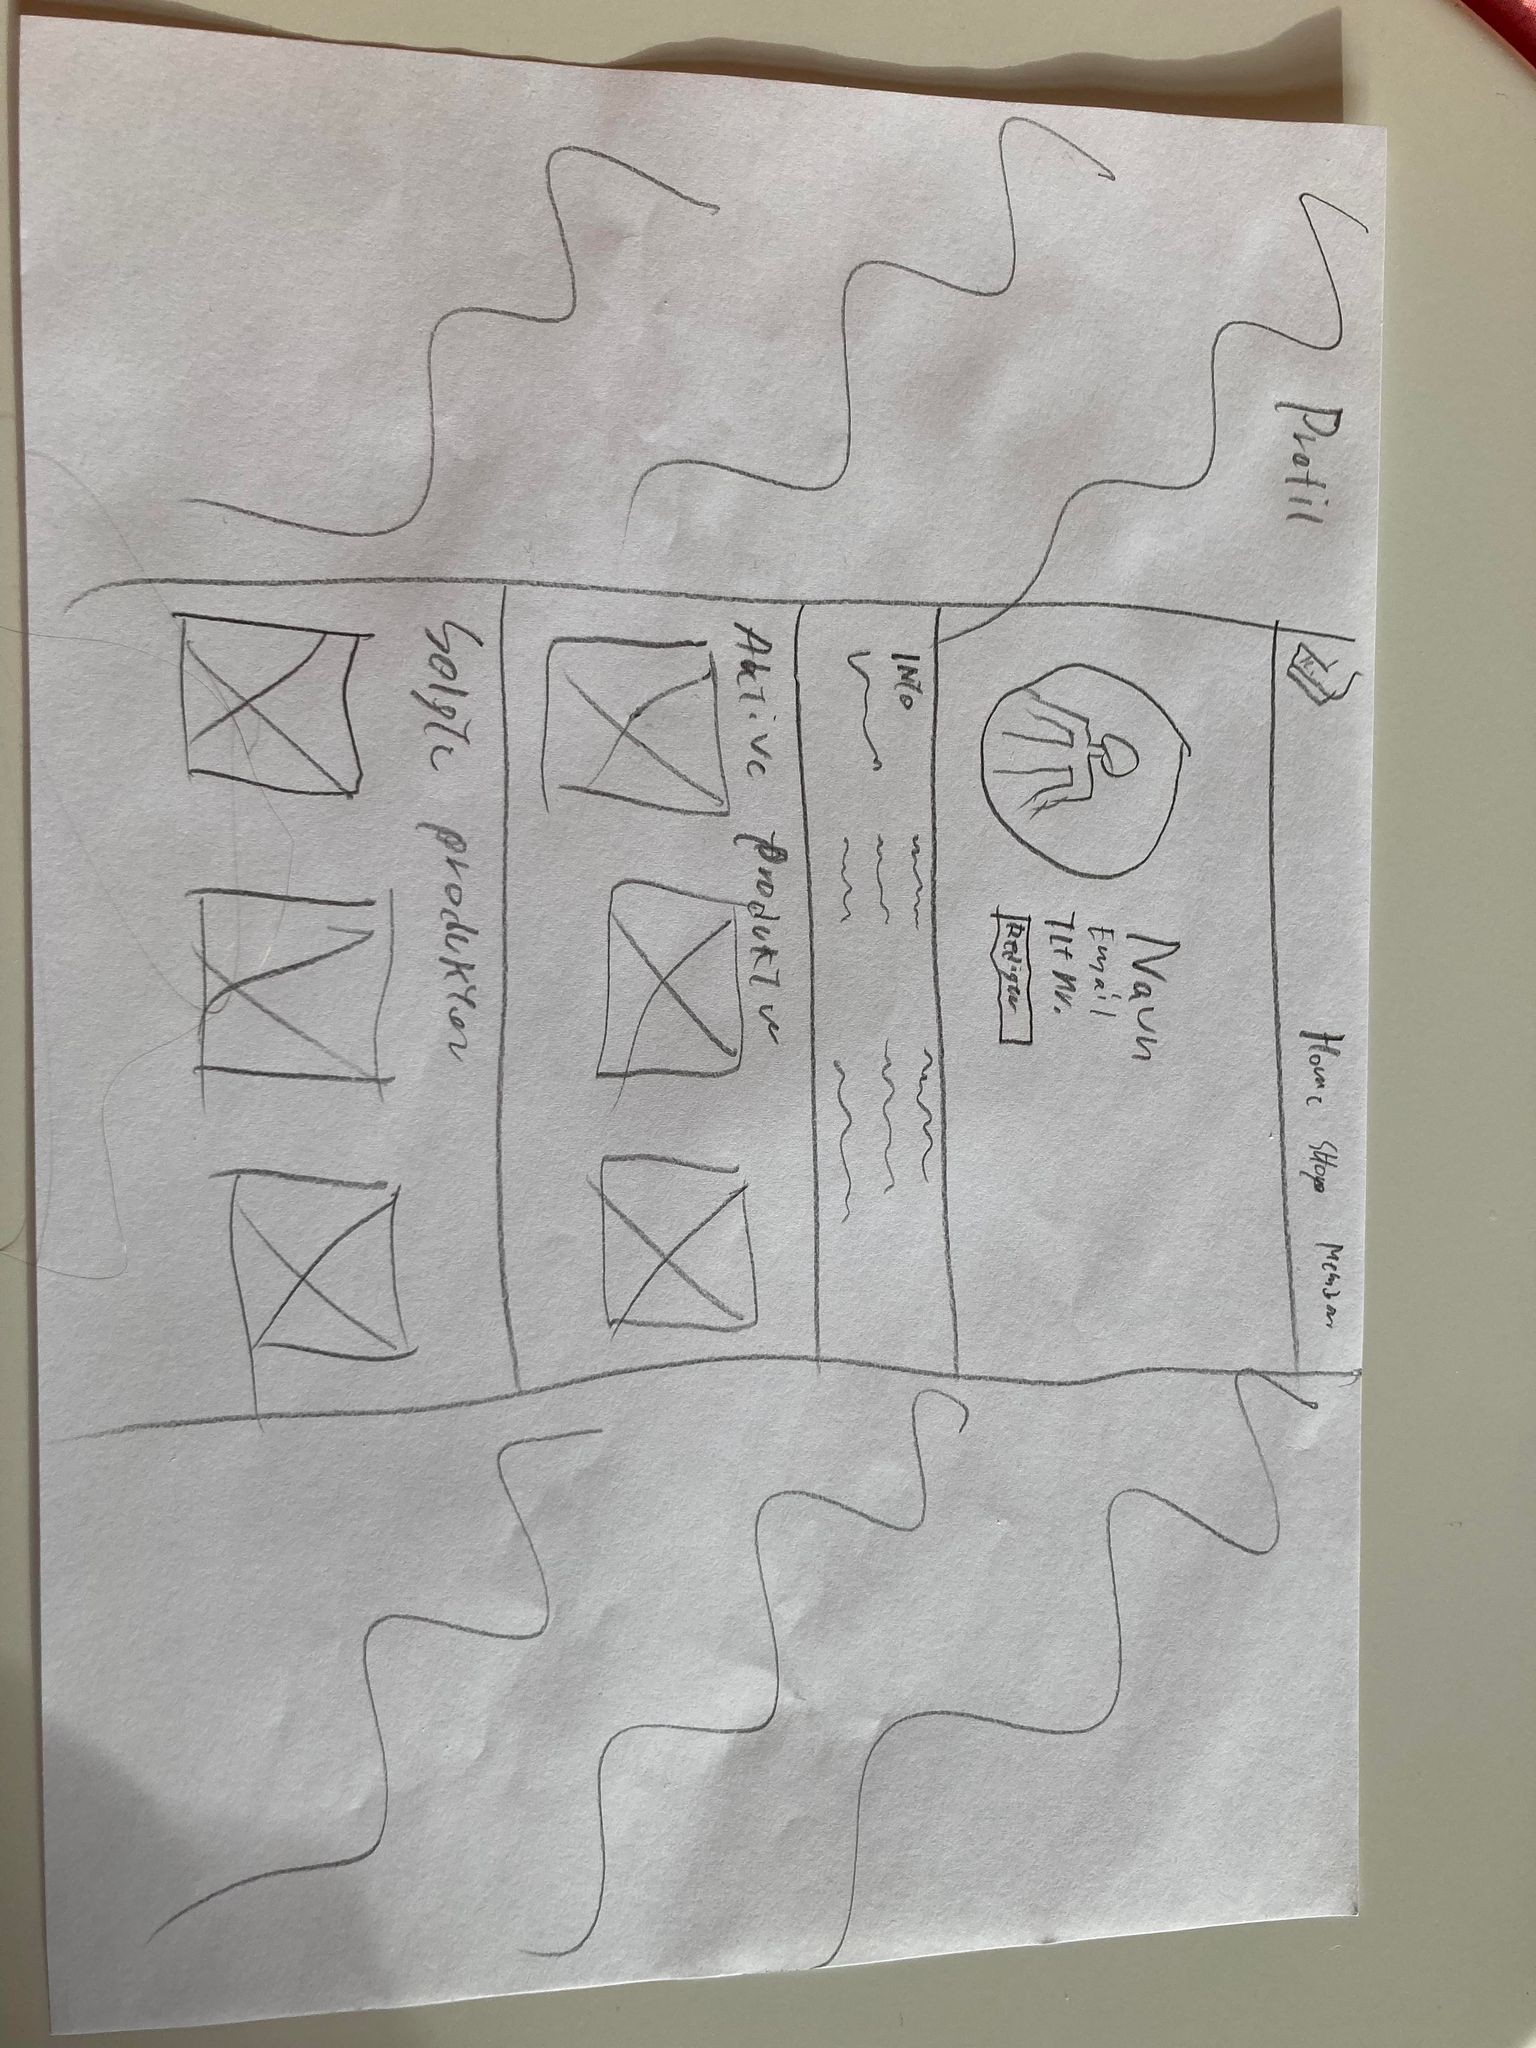 Profil
Home Shop Members
Navn
Email
Tlf nr.
Rediger
INFO
Aktive produkter
Solgte produkter